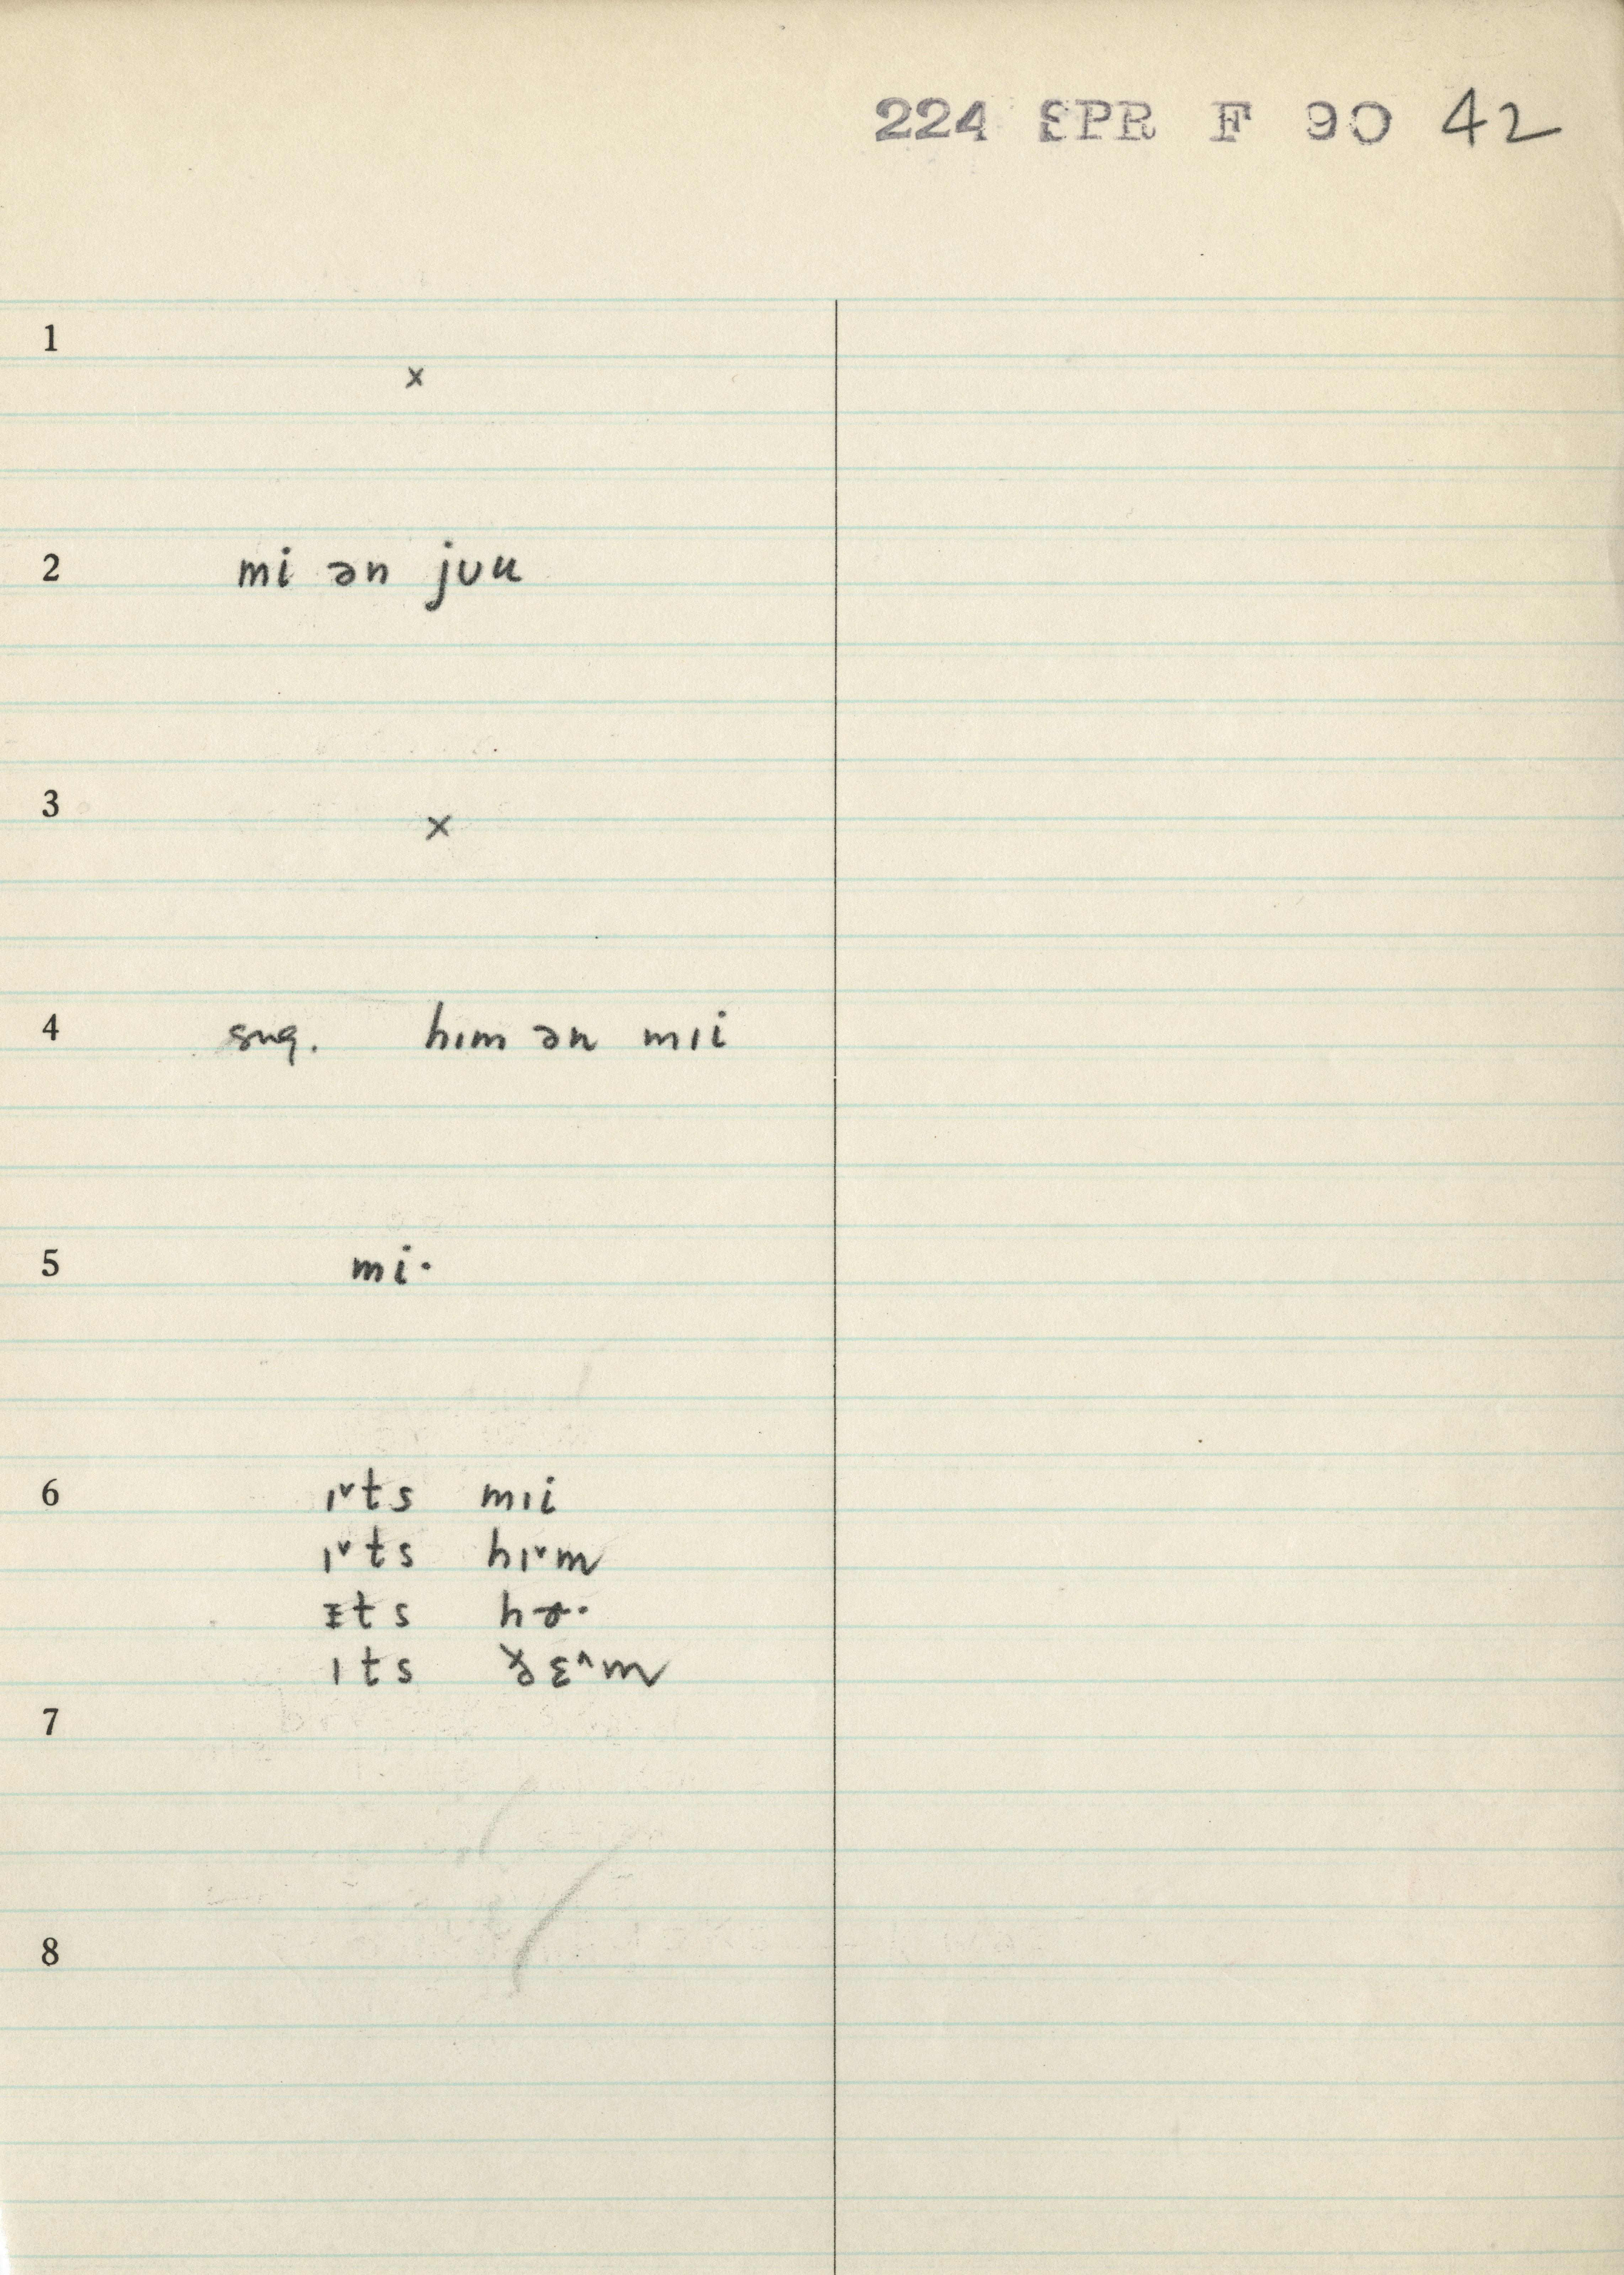 224 SPR F 90 42
1
x
2 mi ən jᴜu
3
x
4 sug. hɪm ən mɪi
5 mi·
6 ɪ˅ts mɪi
ɪ˅ts hɪ˅m
ɪts
ɪts ðɛ^m
7
8